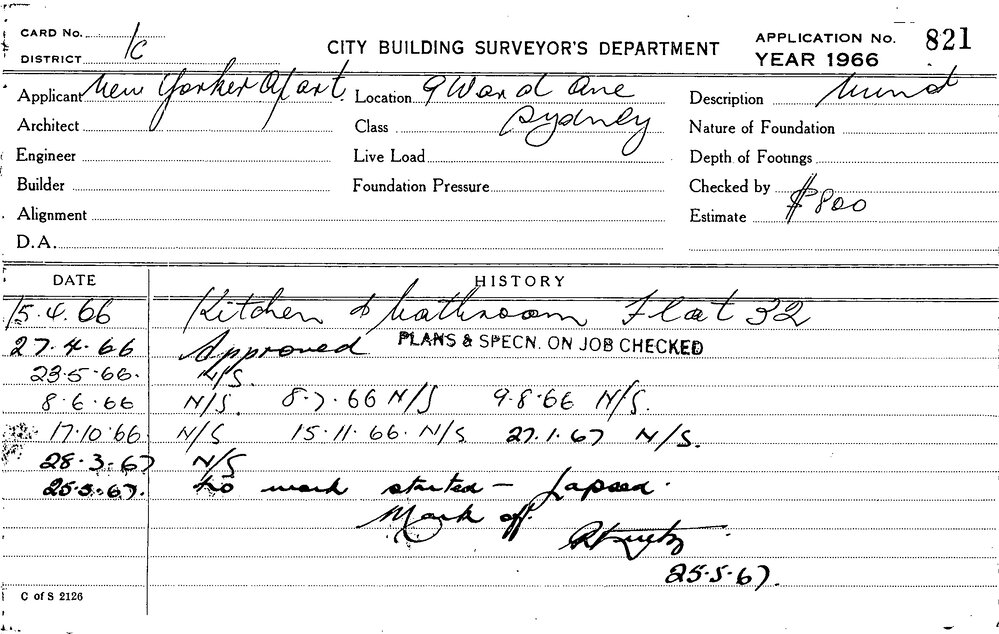 CARD No.
DISTRICT 1c
CITY BUILDING SURVEYOR'S DEPARTMENT
APPLICATION No. 821
YEAR 1966
Applicant New Yorker Apart.
Location 9 Ward Ave
Sydney
Description
Architect
Class
Nature of Foundation
Engineer
Live Load
Depth of Footings
Builder
Foundation Pressure
Checked by
Alignment
Estimate $800
D.A.
DATE HISTORY
15.4.66 Kitchen & bathroom Flat 32
27.4.66 Approved PLANS & SPECN. ON JOB CHECKED
23.5.66. N/S.
8.6.66 N/S. 8.7.66 N/S 9.8.66 N/S.
17.10.66 N/S 15.11.66. N/S 27.1.67 N/S.
28.3.67 N/S
25.5.67. No work started - Lapsed.
Mark off.
25.5.67.
C of S 2126